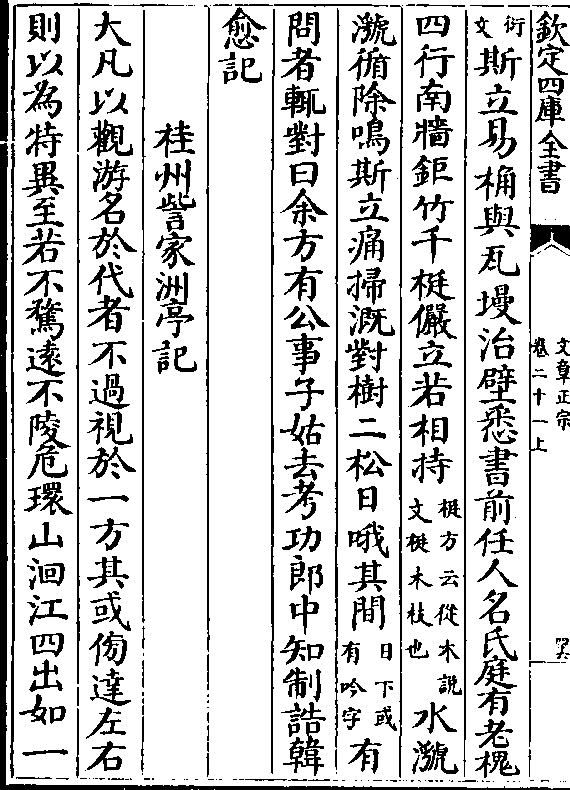 欽定四庫全書
文章正宗
卷二十一上
衍文斯立易桷與瓦墁治壁悉書前任人名氏庭有老槐
四行南牆鉅竹千梃儼立若相持梃方云從木說文梃木枝也水㶁
㶁循除鳴斯立痛掃溉對樹二松日哦其間日下或有吟字有
問者輒對曰余方有公事子姑去考功郎中知制誥韓
愈記
桂州訾家洲亭記
大凡以觀游名於代者不過視於一方其或傍達左右
則以為特異至若不騖遠不陵危環山洄江四出如一